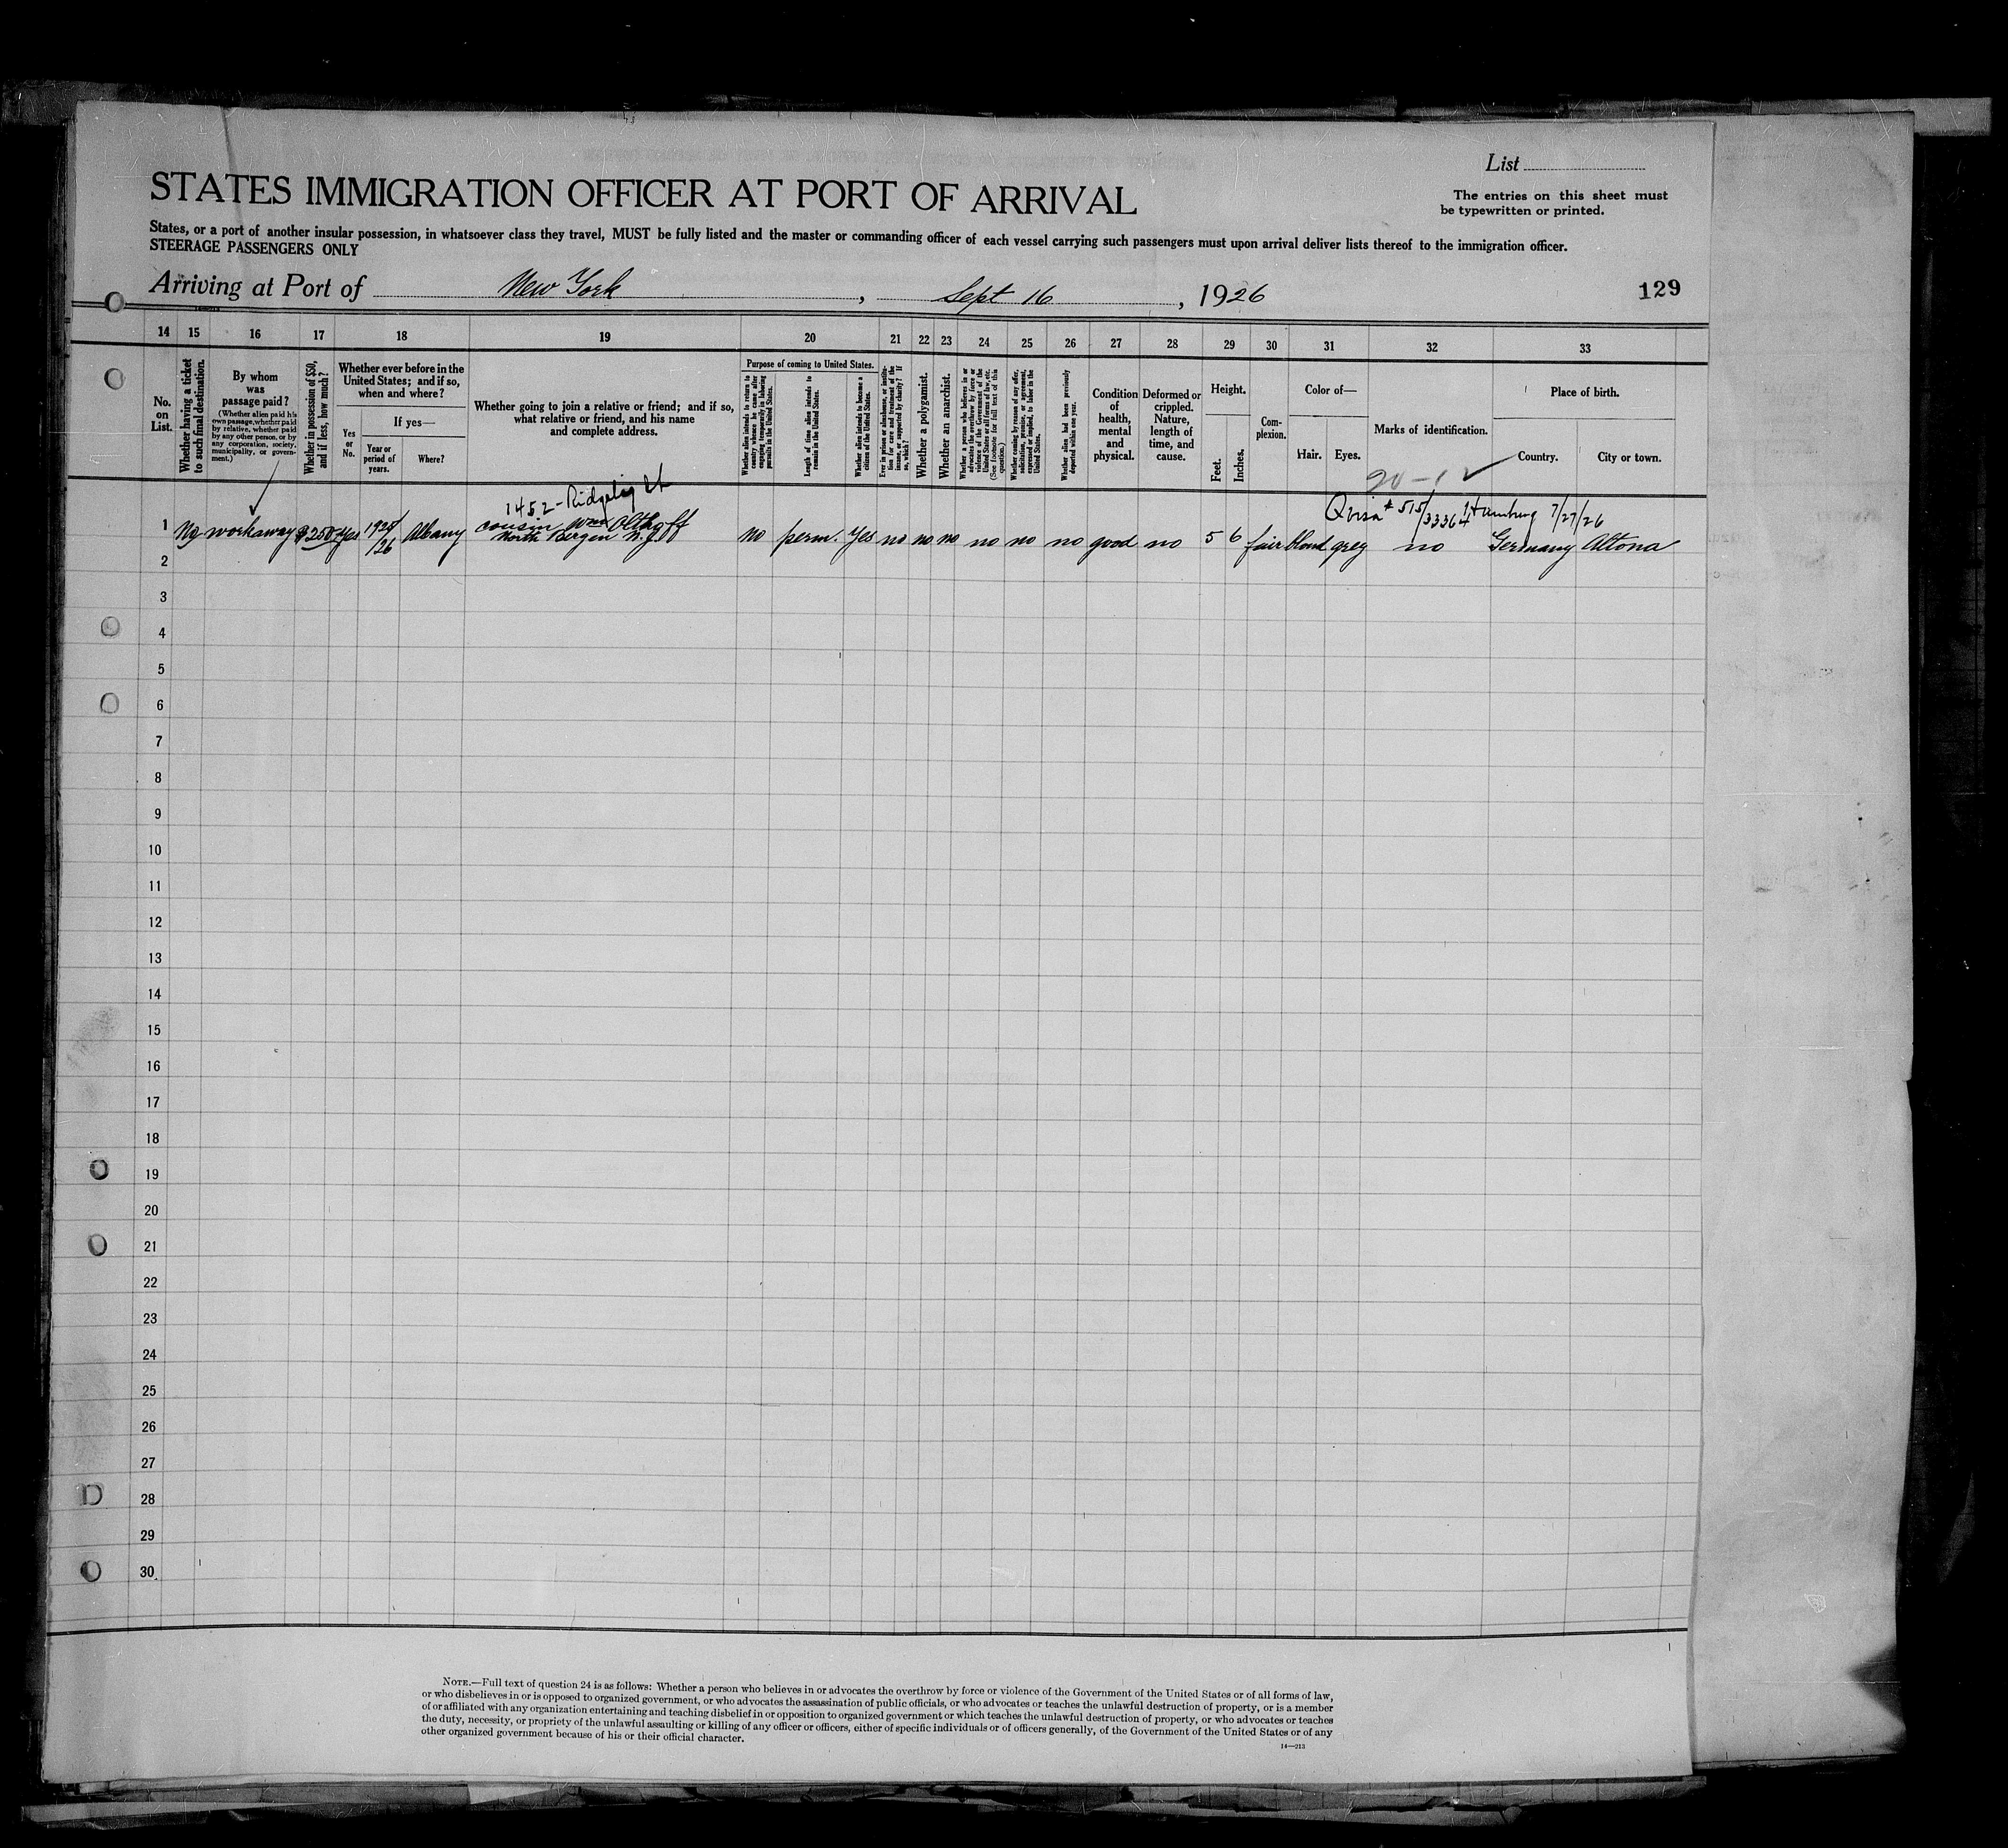 List
STATES IMMIGRATION OFFICER AT PORT OF ARRIVAL
The entries on this sheet must
be typewritten or printed.
States, or a port of another insular possession, in whatsoever class they travel, MUST be fully listed and the master or commanding officer of each vessel carrying such passengers must upon arrival deliver lists thereof to the immigration officer.
STEERAGE PASSENGERS ONLY
Arriving at Port of New York, Sept 16, 1926
129
14 15 16 17 18 19 20 21 22 23 24 25 26 27 28 29 30 31 32 33
No.
on
List.
Whether having a ticket
to such final destination.
By whom
was
passage paid?
(Whether alien paid his
own passage, whether paid
by relative, whether paid
by any other person, or by
any corporation, society,
municipality, or govern-
ment.)
Whether in possession of $50,
and if less, how much?
Whether ever before in the
United States; and if so,
when and where?
Yes
or
No.
If yes—
Year or
period of
years.
Where?
Whether going to join a relative or friend; and if so,
what relative or friend, and his name
and complete address.
Purpose of coming to United States.
Whether alien intends to return to
country whence he came after
engaging temporarily in laboring
pursuits in the United States.
Length of time alien intends to
remain in the United States.
Whether alien intends to become a
citizen of the United States.
Ever in prison or almshouse, or institu-
tion for care and treatment of the
insane, or supported by charity? If
so, which?
Whether a polygamist.
Whether an anarchist.
Whether a person who believes in or
advocates the overthrow by force or
violence of the Government of the
United States or all forms of law, etc.
(See footnote for full text of this
question.)
Whether coming by reason of any offer,
solicitation, promise, or agreement,
expressed or implied, to labor in the
United States.
Whether alien had been previously
deported within one year.
Condition
of
health,
mental
and
physical.
Deformed or
crippled.
Nature,
length of
time, and
cause.
Height.
Feet.
Inches.
Com-
plexion.
Color of—
Hair. Eyes.
Marks of identification.
Place of birth.
Country. City or town.
20-1
1452-
Qvisa # 515/33364 Hamburg 7/27/26
1 No workaway $250 Yes 1925/26 Albany cousin Wm Olthoff no perm. Yes no no no no no no good no 5 6 fair blond grey no Germany Altona
North Bergen N.J.
2
3
4
5
6
7
8
9
10
11
12
13
14
15
16
17
18
19
20
21
22
23
24
25
26
27
28
29
30
NOTE.—Full text of question 24 is as follows: Whether a person who believes in or advocates the overthrow by force or violence of the Government of the United States or of all forms of law,
or who disbelieves in or is opposed to organized government, or who advocates the assassination of public officials, or who advocates or teaches the unlawful destruction of property, or is a member
of or affiliated with any organization entertaining and teaching disbelief in or opposition to organized government or which teaches the unlawful destruction of property, or who advocates or teaches
the duty, necessity, or propriety of the unlawful assaulting or killing of any officer or officers, either of specific individuals or of officers generally, of the Government of the United States or of any
other organized government because of his or their official character.
14—213